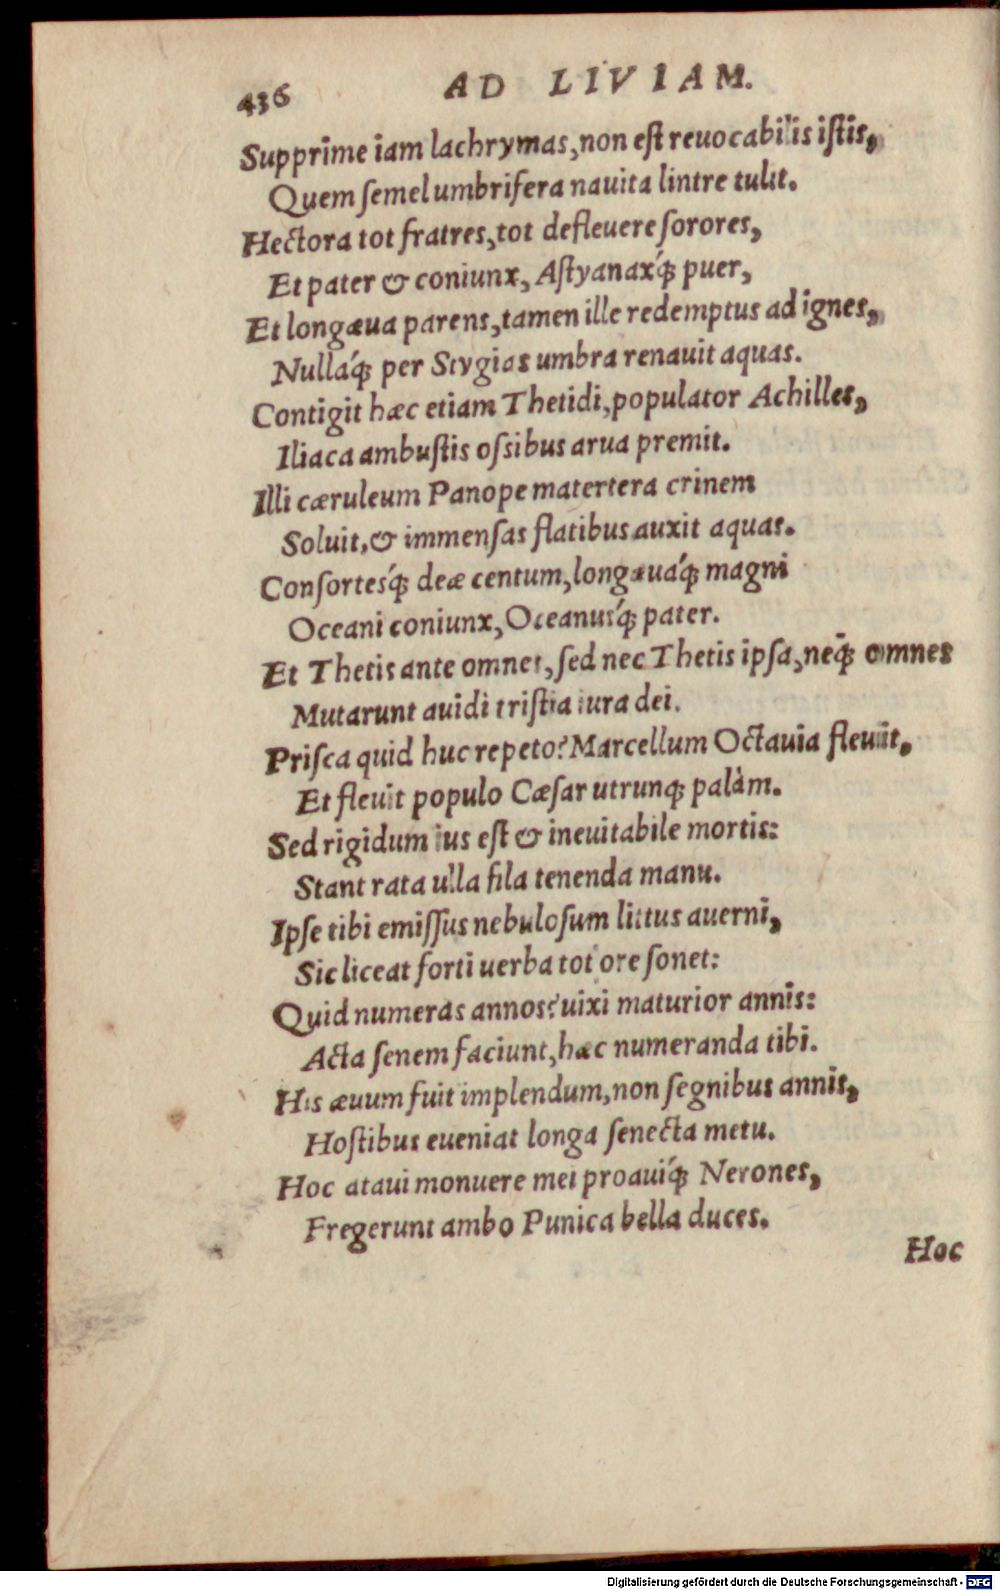 436 AD LIVIAM.
Supprime iam lachrymas, non est reuocabilis istis,
Quem semel umbrifera nauita lintre tulit.
Hectora tot fratres, tot defleuere sorores,
Et pater & coniunx, Astyanaxq́; puer,
Et longæua parens, tamen ille redemptus ad ignes,
Nullaq́; per Stygias umbra renauit aquas.
Contigit hæc etiam Thetidi, populator Achilles,
Iliaca ambustis ossibus arua premit.
Illi cæruleum Panope matertera crinem
Soluit, & immensas flatibus auxit aquas.
Consortesq́; deæ centum, longæuaq́; magni
Oceani coniunx, Oceanusq́; pater.
Et Thetis ante omnes, sed nec Thetis ipsa, neq; omnes
Mutarunt auidi tristia iura dei.
Prisca quid huc repeto? Marcellum Octauia fleuit,
Et fleuit populo Cæsar utrunq; palàm.
Sed rigidum ius est & ineuitabile mortis:
Stant rata ulla fila tenenda manu.
Ipse tibi emissus nebulosum littus auerni,
Sic liceat forti uerba tot ore sonet:
Quid numeras annos? uixi maturior annis:
Acta senem faciunt, hæc numeranda tibi.
His æuum fuit implendum, non segnibus annis,
Hostibus eueniat longa senecta metu.
Hoc ataui monuere mei proauiq́; Nerones,
Fregerunt ambo Punica bella duces.
Hoc
Digitalisierung gefördert durch die Deutsche Forschungsgemeinschaft - DFG